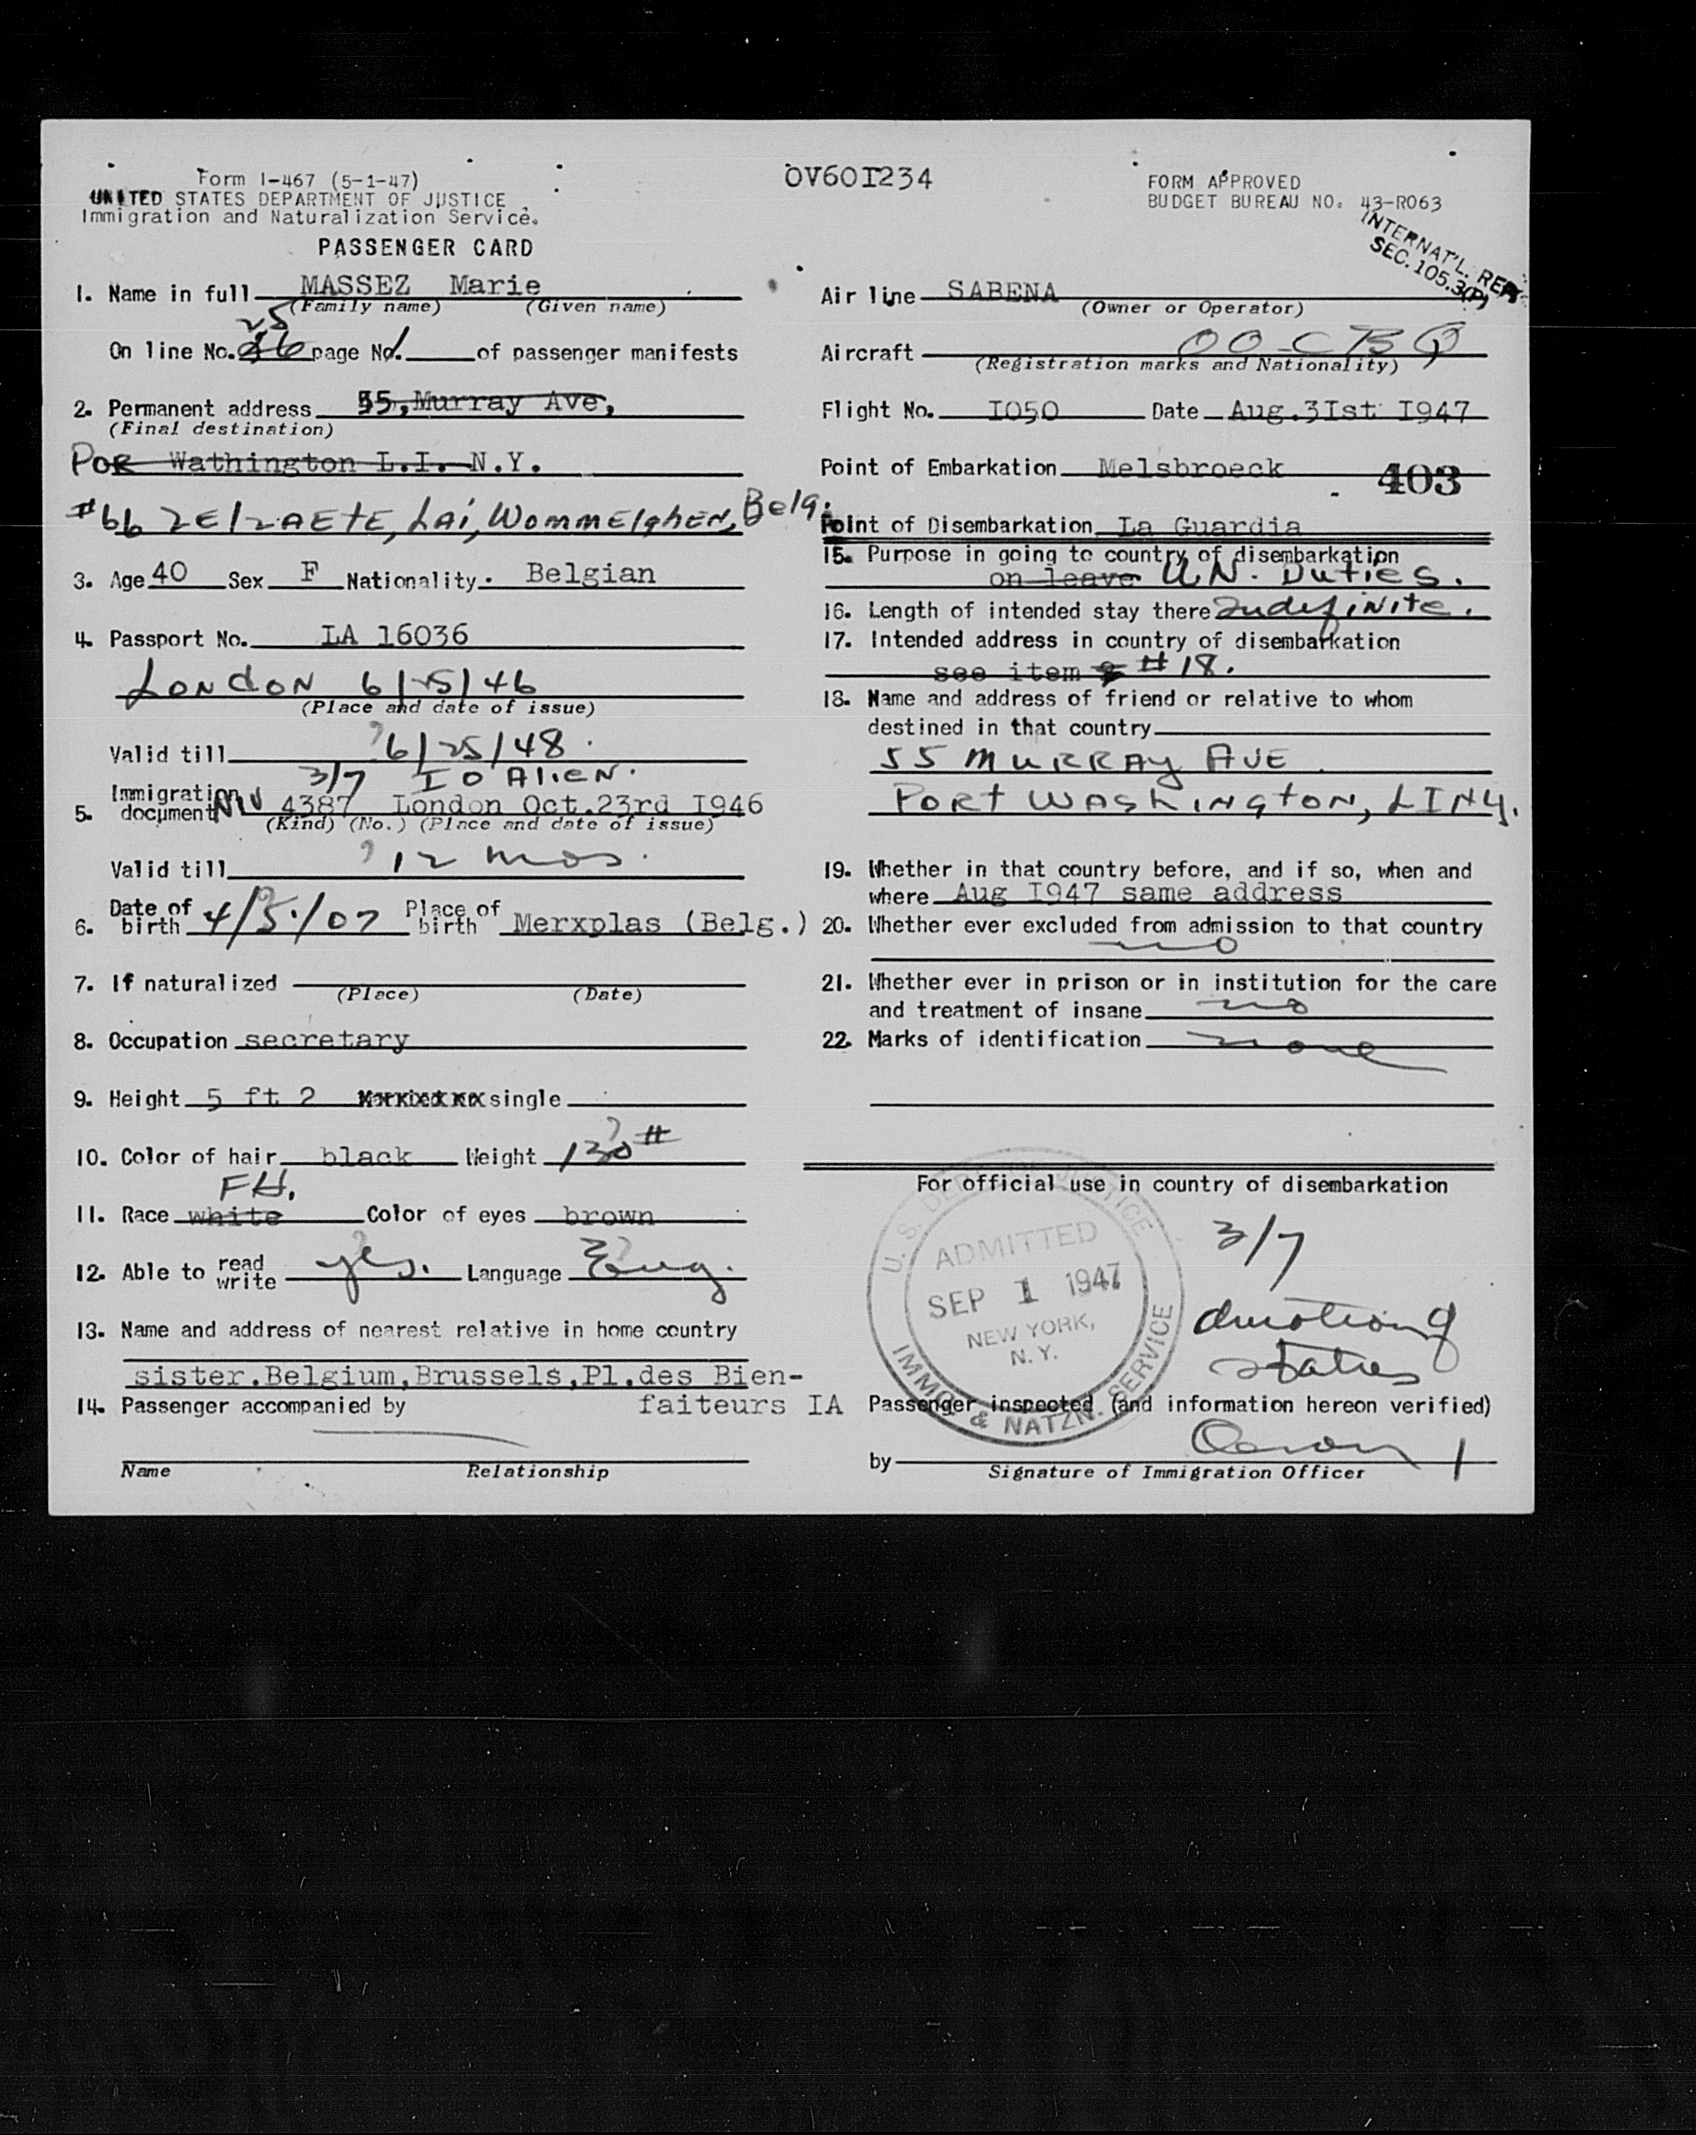 Form I-467 (5-1-47)
UNITED STATES DEPARTMENT OF JUSTICE
Immigration and Naturalization Service.
PASSENGER CARD
OV60I234
FORM APPROVED
BUDGET BUREAU NO. 43-R063
INTERNAT'L. REP.
SEC. 105.3(P)
1. Name in full MASSEZ Marie
(Family name) (Given name)
25
On line No. 26 page No. 1 of passenger manifests
2. Permanent address 55, Murray Ave,
(Final destination)
Por Wathington L.I. N.Y.
#66 ZELZAETE, LAi, WOMMElghEN, Belg.
3. Age 40 Sex F Nationality. Belgian
4. Passport No. LA 16036
LONdON 6/25/46
(Place and date of issue)
Valid till 6/25/48.
3/7 IO AliEN.
5. Immigration document NIV 4387 London Oct.23rd I946
(Kind) (No.) (Place and date of issue)
Valid till 12 mos.
6. Date of birth 4/5/07 Place of birth Merxplas (Belg.)
7. If naturalized
(Place) (Date)
8. Occupation secretary
9. Height 5 ft 2 single
10. Color of hair black Weight 130#
FH.
11. Race white Color of eyes brown
12. Able to read write yes. Language Eng.
13. Name and address of nearest relative in home country
sister.Belgium,Brussels,Pl.des Bien-
faiteurs IA
14. Passenger accompanied by
Name Relationship
Air line SABENA
(Owner or Operator)
Aircraft OO-CBQ
(Registration marks and Nationality)
Flight No. I050 Date Aug.3Ist I947
Point of Embarkation Melsbroeck
403
Point of Disembarkation La Guardia
15. Purpose in going to country of disembarkation
on leave U.N. DutiES.
16. Length of intended stay there IndefiNite.
17. Intended address in country of disembarkation
see item # 18.
18. Name and address of friend or relative to whom
destined in that country
55 MURRAy AVE
PORt WAShiNgtON, LINY.
19. Whether in that country before, and if so, when and
where Aug I947 same address
20. Whether ever excluded from admission to that country
no
21. Whether ever in prison or in institution for the care
and treatment of insane no
22. Marks of identification none
For official use in country of disembarkation
U.S. DEPT. OF JUSTICE
ADMITTED
SEP 1 1947
NEW YORK,
N.Y.
IMMG. & NATZN. SERVICE
3/7
duration of
status
Passenger inspected (and information hereon verified)
by
Signature of Immigration Officer